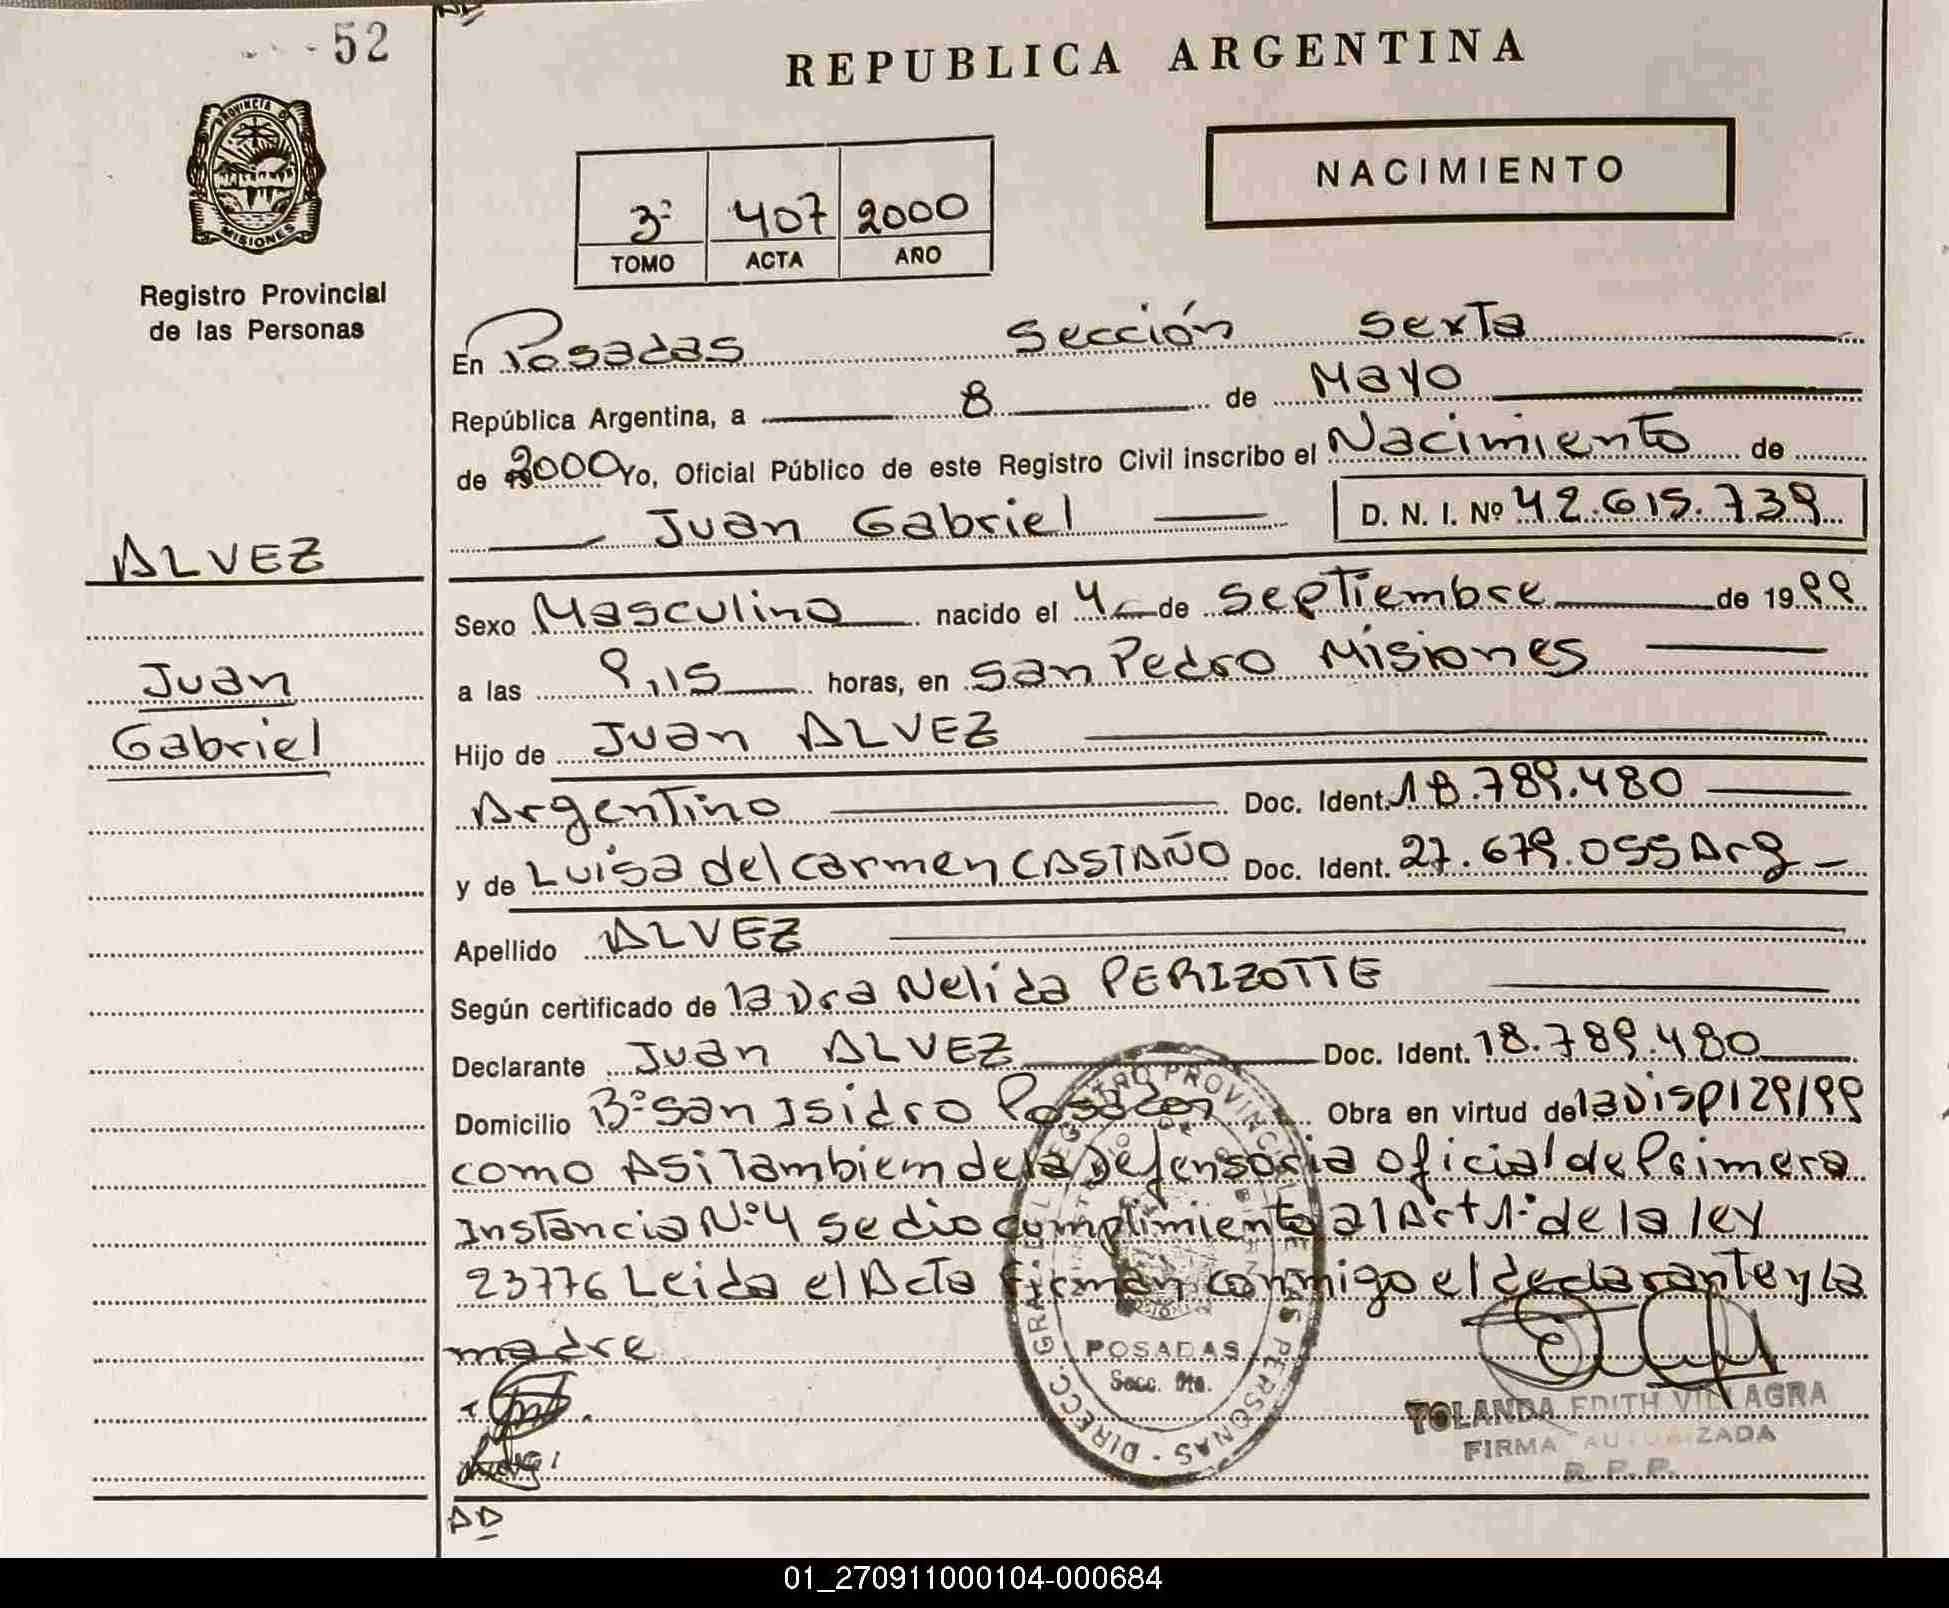 52
PROVINCIA DE
MISIONES
Registro Provincial
de las Personas
ALVEZ
Juan
Gabriel
REPUBLICA ARGENTINA
NACIMIENTO
3º 407 2000
TOMO ACTA AÑO
En Posadas Sección Sexta
República Argentina, a 8 de Mayo
de 2000 Yo, Oficial Público de este Registro Civil inscribo el Nacimiento de
Juan Gabriel D. N. I. Nº 42.615.739
Sexo Masculino nacido el 4 de Septiembre de 1999
a las 9,15 horas, en San Pedro Misiones
Hijo de Juan ALVEZ
Argentino Doc. Ident. 18.789.480
y de Luisa del Carmen CASTAÑO Doc. Ident. 27.679.055 Arg
Apellido ALVEZ
Según certificado de la Dra Nelida PERIZOTTE
Declarante Juan ALVEZ Doc. Ident. 18.789.480
Domicilio Bº San Isidro Posadas Obra en virtud de la Disp 129/99
como Asi Tambiem de la Defensoria Oficial de Primera
Instancia Nº 4 se dio cumplimiento al Art 1º de la ley
23776 Leida el Acta firman conmigo el declarante y la
madre
DIRECC. GRAL. DEL REGISTRO PROVINCIAL DE LAS PERSONAS
POSADAS
Secc. 6ta.
YOLANDA EDITH VILLAGRA
FIRMA AUTORIZADA
R. P. P.
01_270911000104-000684